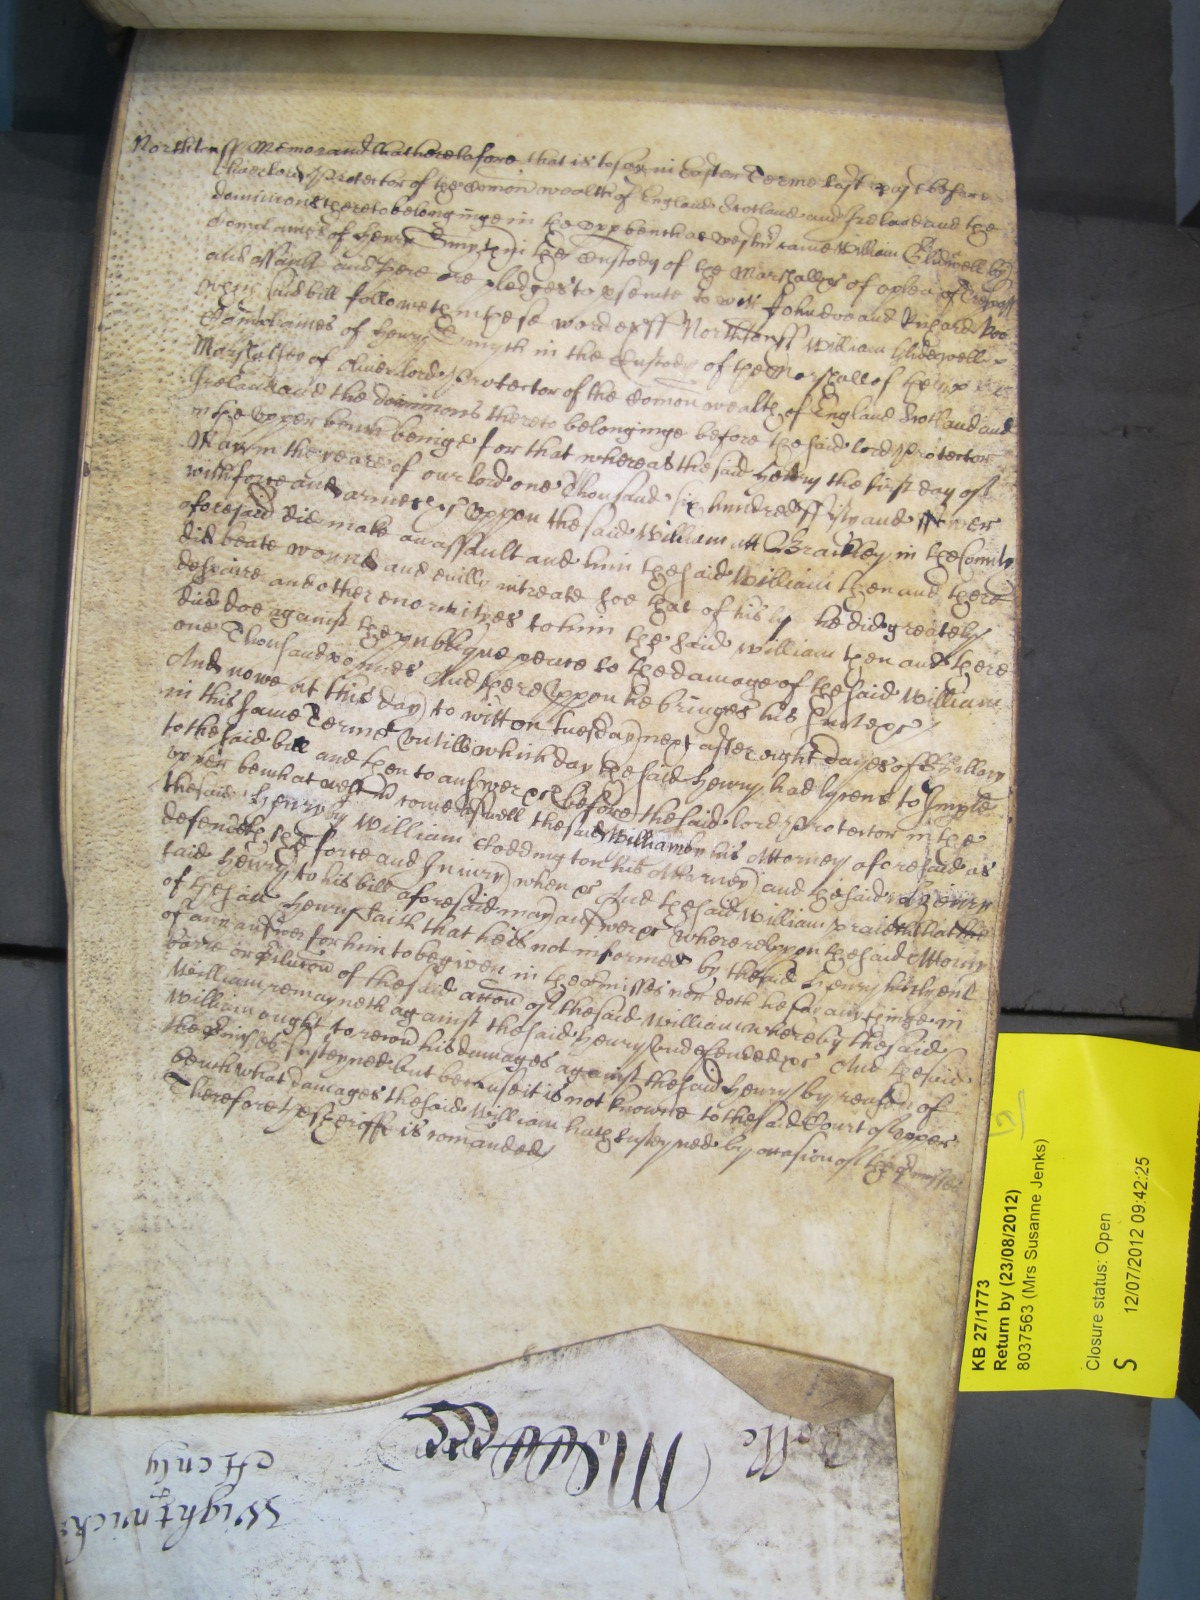 Northtonss Memorand that heretofore that is to say in Easter Terme last past before
the lord Protector of the Comon wealth of England Scotland and Ireland and the
dominions thereto belonginge in the upp bench at Westmr came William Glidewell by
Complaines of Henry Smyth in the Custody of the Marshall of a plea of Trespass
and assault and there are pledges to prsecute to witt John doe and Richard Roo
which said bill followeth in these wordes ss Northtonss William Glidewell
Complaines of Henry Smyth in the Custody of the Marshall of the
Marshalsee of Oliver lord Protector of the Comon wealth of England Scotland and
Ireland and the dominions thereto belonginge before the said lord Protector
in the upper bench beinge for that whereas the said Henry the first day of
May in the yeare of our lord one Thousand six hundred fifty and
with force and armes &c uppon the said William att Brackley in the County
aforesaid did make an assault and him the said William then and there
did beate wound and evilly intreate soe that of his lyfe he did greately
despaire and other enormityes to him the said William then and there
did doe against the publique peace to the damage of the said William
one Thousand poundes And thereuppon he bringes his suite &c
And nowe at this day to witt on tuesday next after eight dayes of St Hillary
in this same Terme untill which day the said Henry had lycence to Imple
to the said bill and then to answere &c before the said lord Protector in the
upper bench at Westmr come aswell the said William by his Attorney aforesaid as
the said Henry by William Coddington his Attorney and the said Henry
defendeth the force and Iniury when &c And the said William praieth that the
said Henry to his bill aforesaid may answere &c whereuppon the said Attorny
of the said Henry saith that he is not informed by the said Henry his Clyent
of any answer for him to be given in the pmisses nor doth he say any thinge in
barre or of the said accon of the said William whereby the said
William remayneth against the said Henry undefended &c And the said
William ought to recour his damages against the said Henry by reason of
the pmisses susteyned but because it is not knowne to the said Court of upper
bench what damages the said William hath susteyned by occasion of the pmisses
Therefore the sheriffe is comanded
KB 27/1773
Return by (23/08/2012)
8037563 (Mrs Susanne Jenks)
Closure status: Open
S 12/07/2012 09:42:25
Rolle
Wightwick
&
Henly